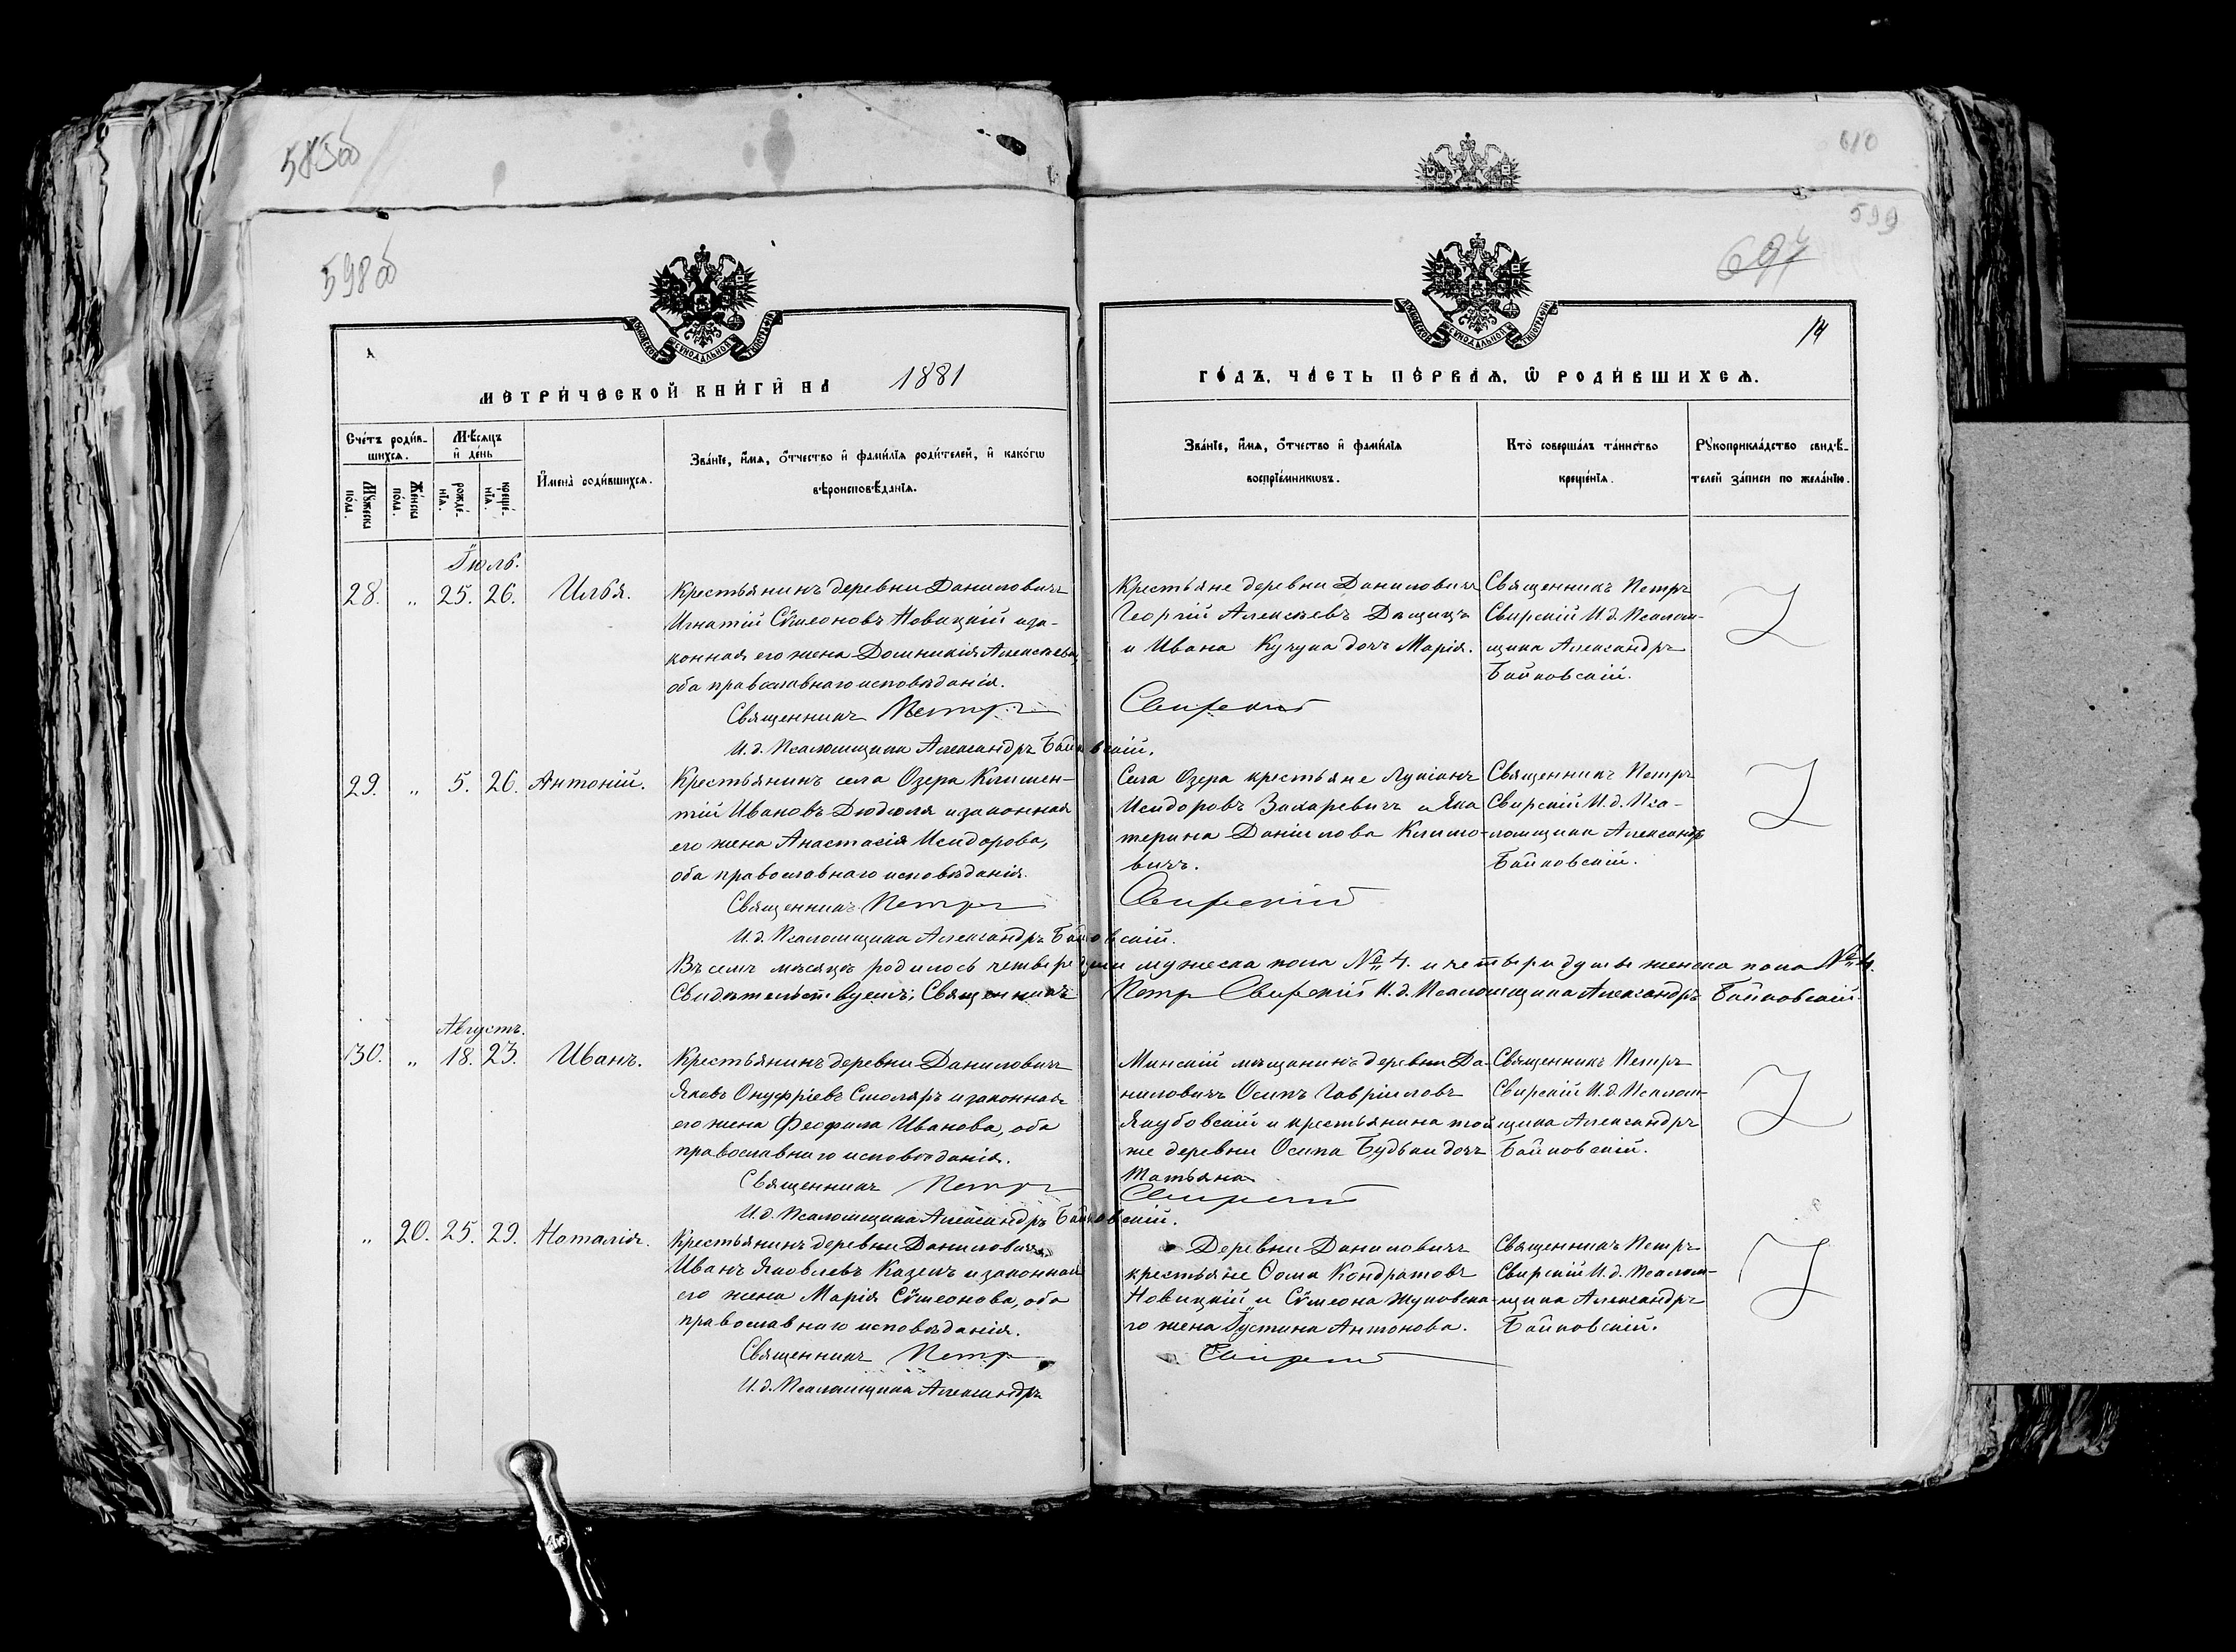 583об
610
598об
599
697
14
МОСКОВСКОЙ СѴНОДАЛЬНОЙ ТИПОГРАФІИ
МОСКОВСКОЙ СѴНОДАЛЬНОЙ ТИПОГРАФІИ
МЕТРИ́ЧЕСКОЙ КНИ́ГИ НА 1881
ГО́ДЪ, ЧА́СТЬ ПЕ́РВАЯ, Ѡ РОДИ́ВШИХСЯ.
Сче́тъ роди́в-
шихся.
Мѣ́сяцъ
и де́нь
Му́жеска
по́ла.
Же́нска
по́ла.
рожде́-
нія.
креще́-
нія.
Имена̀ роди́вшихся.
Зва́ніе, и́мя, о́тчество и фами́лія роди́телей, и како́гѡ
вѣроисповѣ́данія.
Зва́ніе, и́мя, о́тчество и фами́лія
воспріе́мникѡвъ.
Кто̀ соверша́лъ та́инство
креще́нія.
Рꙋкоприкла́дство свидѣ́-
телей за́писи по жела́нію.
Іюль.
28. „ 25. 26. Илья.
Крестьянинъ деревни Даниловичъ
Игнатій Сѵмеоновъ Новицкій и за-
конная его жена Домникія Алексѣева,
оба православнаго исповѣданія.
Священникъ Петръ
И. д. Псаломщика Александръ Байковскій.
Крестьяне деревни Даниловичъ
Георгій Алексѣевъ Дащицъ
и Ивана Кучука дочь Марія.
Свирскій
Священникъ Петръ
Свирскій И. д. Псалом-
щика Александръ
Байковскій.
29. „ 5. 26. Антоній.
Крестьянинъ села Озера Климен-
тій Ивановъ Дюдюля и законная
его жена Анастасія Исидорова,
оба православнаго исповѣданія.
Священникъ Петръ
И. д. Псаломщика Александръ Байковскій.
Села Озера крестьяне Лукіанъ
Исидоровъ Захаревичъ и Ека
терина Даніилова Климо-
вичъ.
Свирскій
Священникъ Петръ
Свирскій И. д. Пса-
ломщика Александръ
Байковскій.
Въ семъ мѣсяцѣ родилось четыре души мужеска пола № 4. и четыре душъ женска пола № 4.
Свидѣтельствуемъ: Священникъ Петръ Свирскій И. д. Псаломщика Александръ Байковскій.
Августъ.
30. „ 18. 23. Иванъ.
Крестьянинъ деревни Даниловичъ
Яковъ Онуфріевъ Смоляръ и законная
его жена Феофила Иванова, оба
православнаго исповѣданія.
Священникъ Петръ
И. д. Псаломщика Александръ Байковскій.
Минскій мѣщанинъ деревни Да-
ниловичъ Осипъ Гавріиловъ
Якубовскій и крестьянина той
же деревни Осипа Будьки дочь
Татьяна
Свирскій
Священникъ Петръ
Свирскій И. д. Псалом-
щика Александръ
Байковскій.
„ 20. 25. 29. Наталія.
Крестьянинъ деревни Даниловичъ
Иванъ Яковлевъ Казекъ и законная
его жена Марія Сѵмеонова, оба
православнаго исповѣданія.
Священникъ Петръ
И. д. Псаломщика Александръ
Деревни Даниловичъ
крестьяне Ѳома Кондратовъ
Новицкій и Сѵмеона Жуковска-
го жена Іустина Антонова.
Свирскій
Священникъ Петръ
Свирскій И. д. Псалом-
щика Александръ
Байковскій.